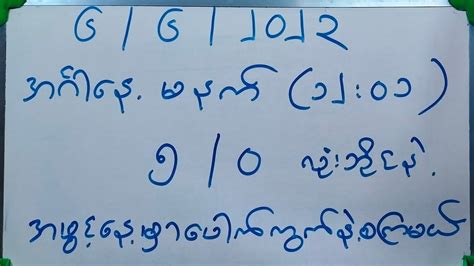 ၆ / ၆ / ၂၀၂၃
အင်္ဂါနေ့ မနက် (၁၂:၀၁)
၅ / ၀ လုံးဘိုင်နဲ့
အဖွင့်နေ့မှာပေါက်ကွက်နဲ့စကြမယ်